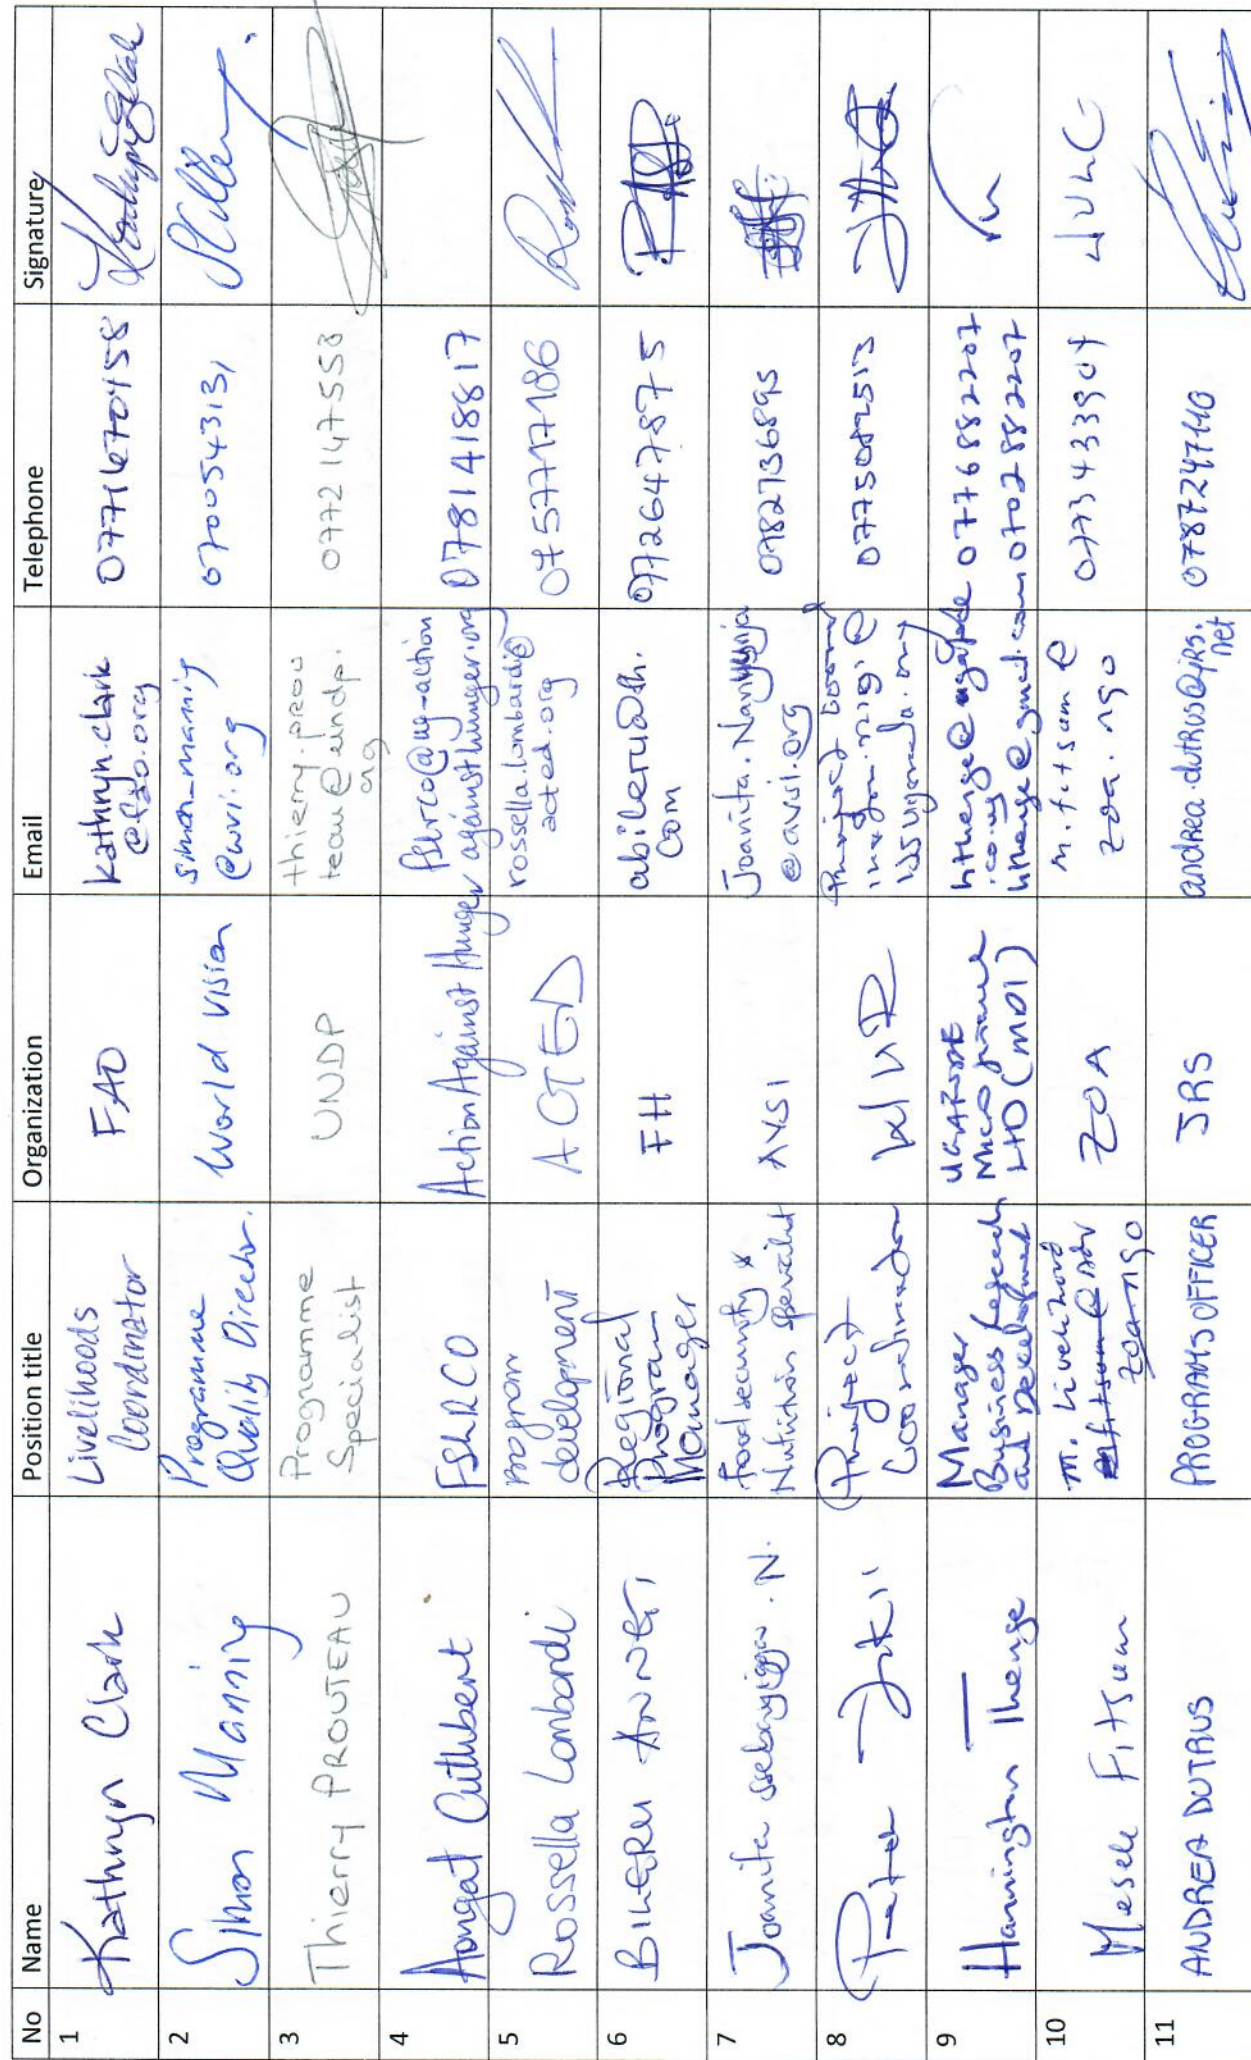 No Name Position title Organization Email Telephone Signature
1 Kathryn Clark Livelihoods Coordinator FAO kathryn.clark @fao.org
2 Simon Manning Programme Quality Director. World Vision simon_manning @wvi.org 0700543131
3 Thierry PROUTEAU Programme Specialist UNDP thierry.prou teau@undp. org 0772147553
4 Aongat Cuthbert FSLRCO Action Against Hunger fslrco@ug-action againsthunger.org 0781418817
5 Rossella Lombardi program development ACTED rossella.lombardi@ acted.org 0757717186
6 Regional Program Manager FH 0772647875
7 Joanita Food security & Nutrition specialist AVSI Joanita. @avsi.org 0782736895
8 Peter Project Coordinator WUR 0775082513
9 Hannington Thenge Manager Business Research and Development UGAFODE Microfinance LTD (MDI) 0776882207 0702882207
10 Mesele Fitsum m. Livelihood ZOA m.fitsum @ zoa.ngo 0773433904
11 ANDREA DUTRUS PROGRAMS OFFICER JRS andrea.dutrus@jrs. net 0787247110